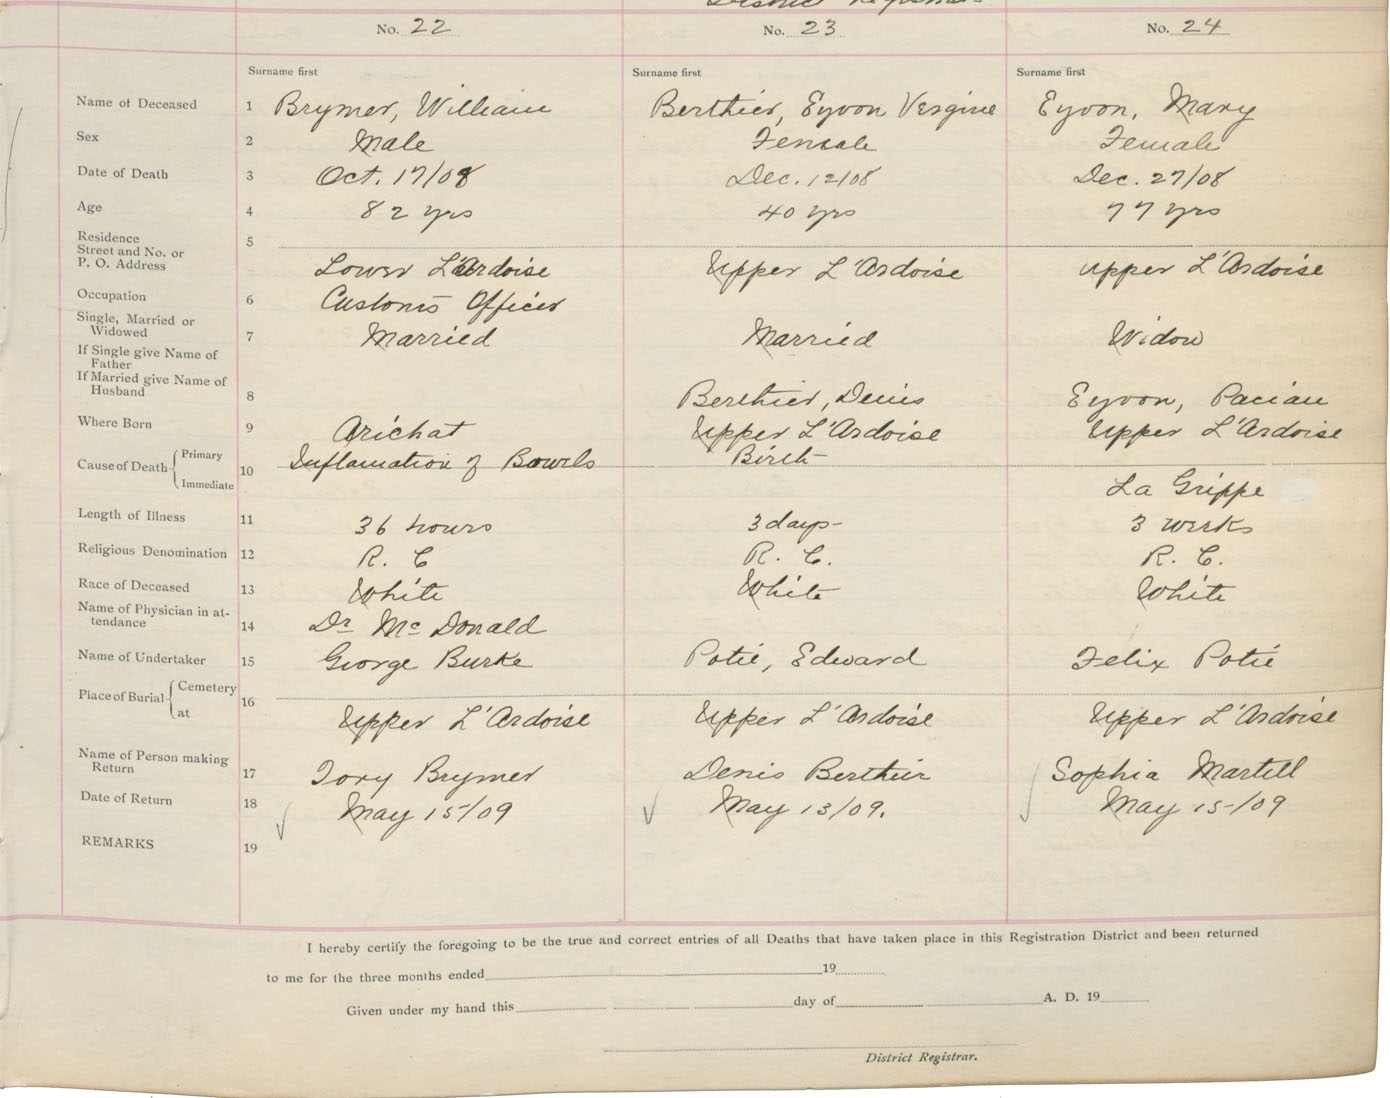 District Registrar
No. 22 No. 23 No. 24
Surname first Surname first Surname first
Name of Deceased 1 Brymer, William Berthier, Eyvon Vergine Eyvon, Mary
Sex 2 Male Female Female
Date of Death 3 Oct. 17/08 Dec. 12/08 Dec. 27/08
Age 4 82 yrs 40 yrs 77 yrs
Residence 5
Street and No. or
P. O. Address Lower L'Ardoise Upper L'Ardoise Upper L'Ardoise
Occupation 6 Customs Officer
Single, Married or
Widowed 7 Married Married Widow
If Single give Name of
Father
If Married give Name of
Husband 8 Berthier, Denis Eyvon, Pacian
Where Born 9 Arichat Upper L'Ardoise Upper L'Ardoise
Cause of Death Primary Inflamation of Bowels Birth
10
Immediate La Grippe
Length of Illness 11 36 hours 3 days- 3 weeks
Religious Denomination 12 R. C R. C. R. C.
Race of Deceased 13 White White White
Name of Physician in at-
tendance 14 Dr McDonald
Name of Undertaker 15 George Burke Potie, Edward Felix Potie
Place of Burial Cemetery 16
at Upper L'Ardoise Upper L'Ardoise Upper L'Ardoise
Name of Person making
Return 17 Tory Brymer Denis Berthier Sophia Martell
Date of Return 18 May 15/09 May 13/09. May 15/09
REMARKS 19
I hereby certify the foregoing to be the true and correct entries of all Deaths that have taken place in this Registration District and been returned
to me for the three months ended 19
Given under my hand this day of A. D. 19
District Registrar.